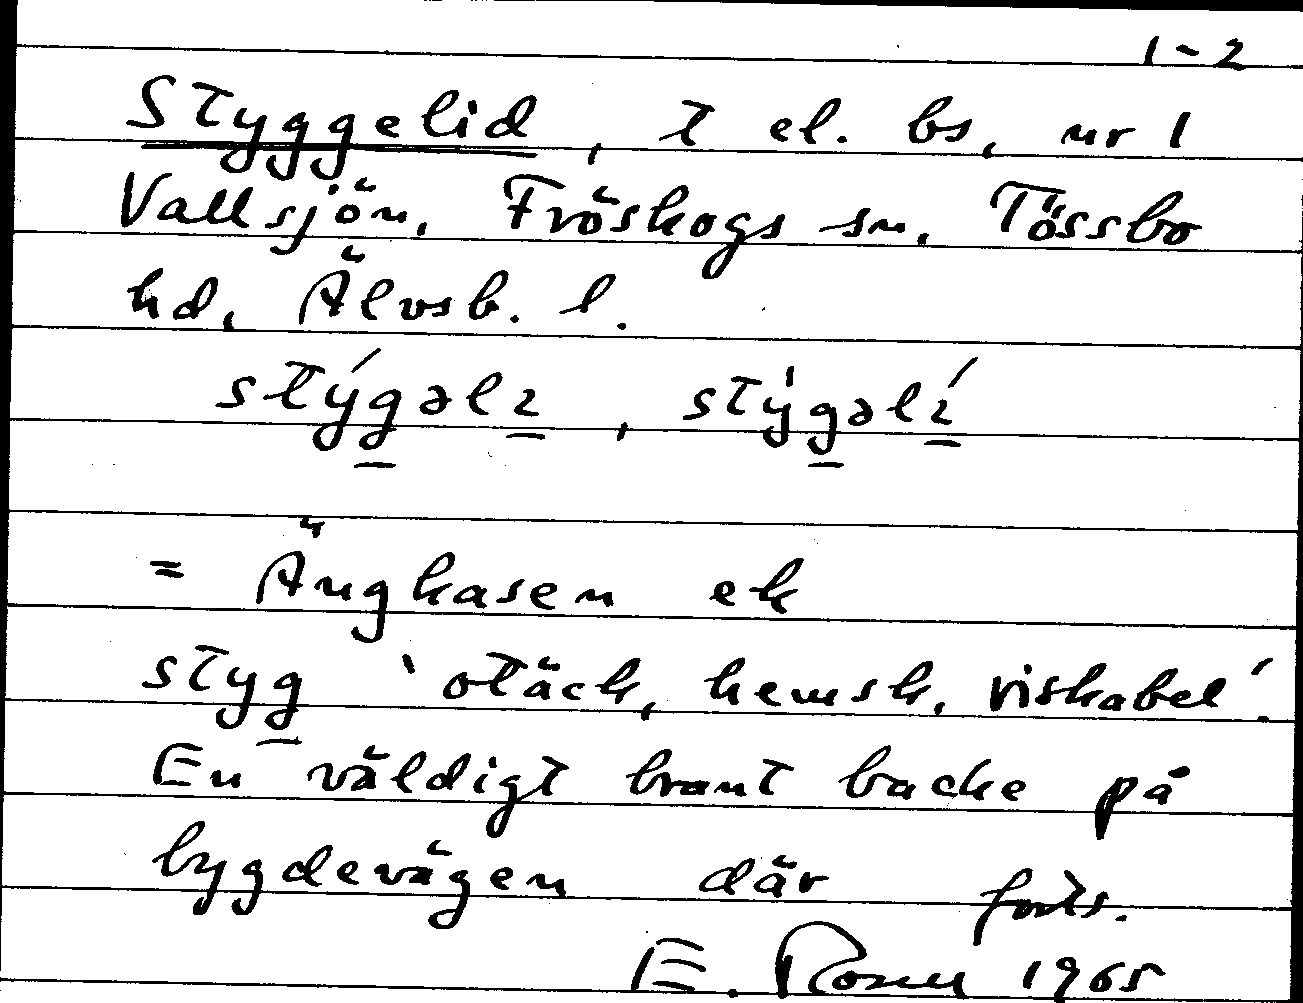 1-2
Styggelid, t el. bs, nr 1
Vallsjön, Fröskogs sn, Tössbo
hd, Älvsb. l.
stýg̲əlı̲, stýg̲əlı̲́
= Ängkasen ek
styg̲ 'otäck, hemsk, riskabel'.
En väldigt brant backe på
bygdevägen där forts.
E. 1965